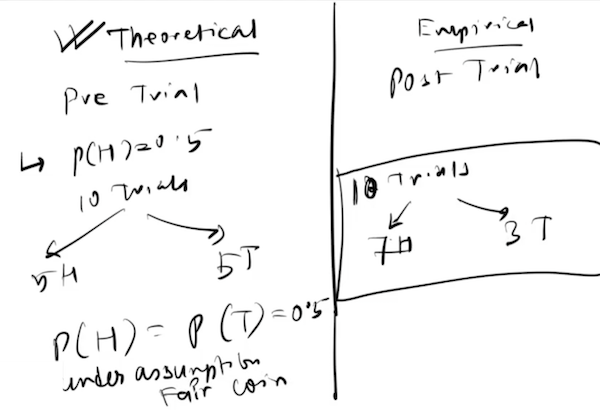 Theoretical
Pre Trial
↳ P(H)=0.5
10 Trials
5H 5T
P(H) = P(T)=0.5
under assumption
Fair coin
Empirical
Post Trial
10 Trials
7H 3T